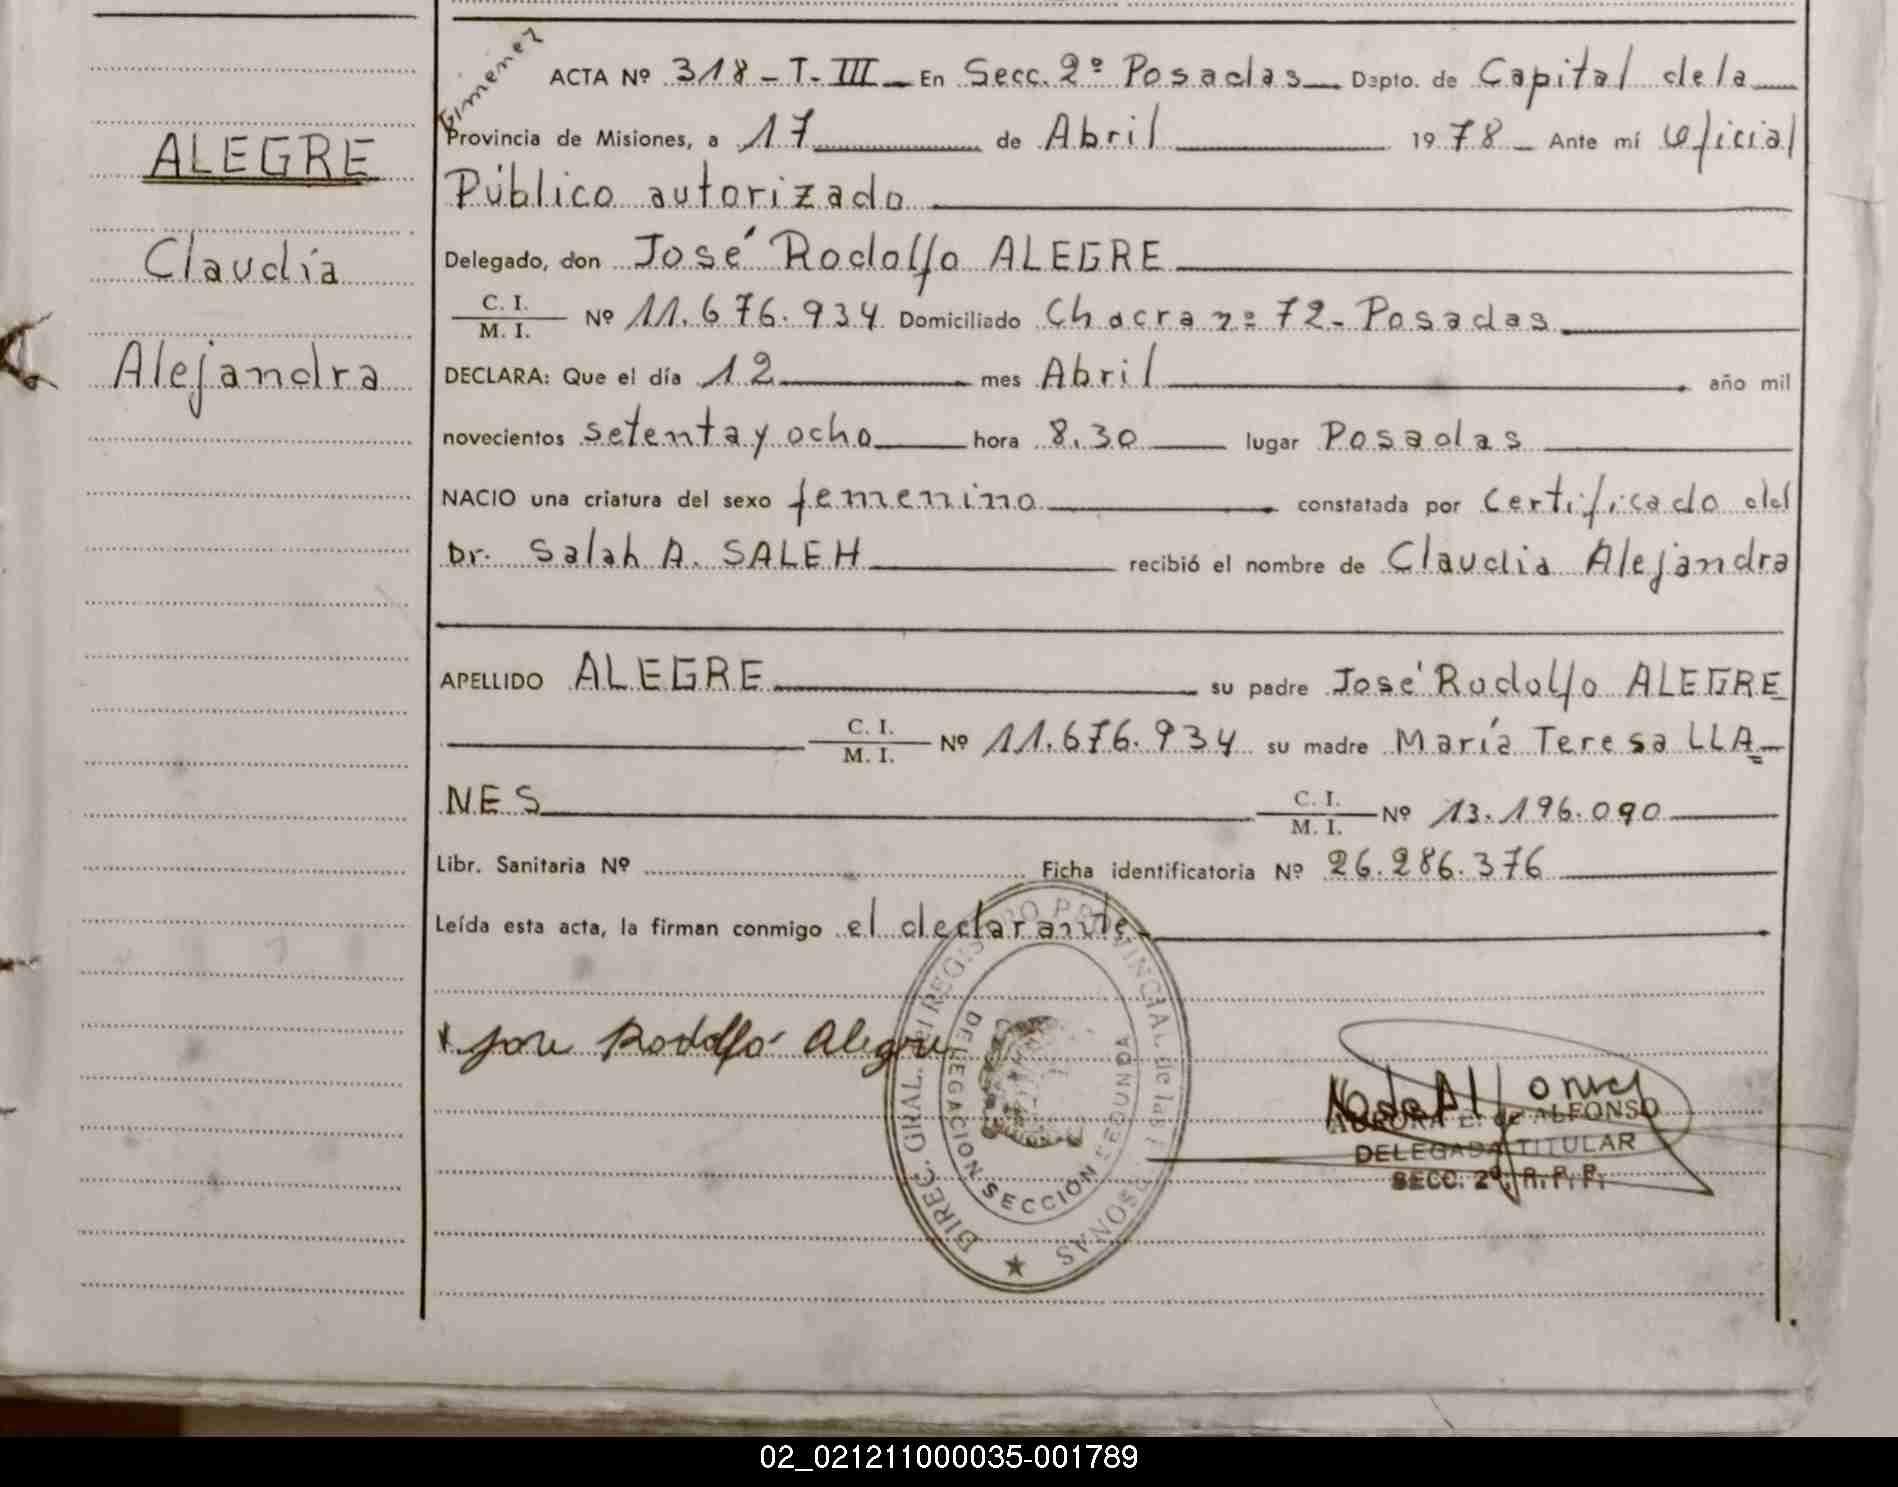 Gimenez
ACTA Nº 318 - T. III - En Secc. 2º Posadas Dpto. de Capital de la
Provincia de Misiones, a 17 de Abril 1978 - Ante mí Oficial
Público autorizado
Delegado, don José Rodolfo ALEGRE
C. I.
M. I. Nº 11.676.934 Domiciliado Chacra nº 72 - Posadas
DECLARA: Que el día 12 mes Abril año mil
novecientos setenta y ocho hora 8.30 lugar Posadas
NACIO una criatura del sexo femenino constatada por Certificado del
Dr. Salah A. SALEH recibió el nombre de Claudia Alejandra
APELLIDO ALEGRE su padre José Rodolfo ALEGRE
C. I.
M. I. Nº 11.676.934 su madre María Teresa LLA=
NES C. I.
M. I. Nº 13.196.090
Libr. Sanitaria Nº Ficha identificatoria Nº 26.286.376
Leída esta acta, la firman conmigo el declarante
Jose Rodolfo Alegre
ALEGRE
Claudia
Alejandra
DIREC. GRAL. del REGISTRO PROVINCIAL de las PERSONAS
DELEGACION SECCIÓN SEGUNDA
AURORA E. de ALFONSO
DELEGADA TITULAR
SECC. 2º, R. P. P.
02_021211000035-001789